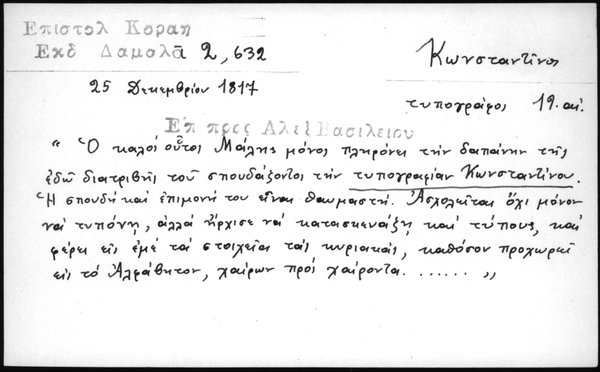 Επιστολ Κοραη
Εκδ Δαμαλᾶ 2,632
Κωνσταντῖνος
25 Δεκεμβρίου 1817
τυπογράφος 19. αἰ.
Ἐπ προς Αλεξ Βασιλειου
" Ὁ καλὸς οὗτος Μάλης μόνος πληρόνει τὴν δαπάνην τῆς
ἐδῶ διατριβῆς τοῦ σπουδάζοντος τὴν τυπογραφίαν Κωνσταντίνου.
Ἡ σπουδὴ καὶ ἐπιμονή του εἶναι θαυμαστή. Ἀσχολεῖται ὄχι μόνον
νὰ τυπόνῃ, ἀλλὰ ἤρχισε νὰ κατασκευάζῃ καὶ τύπους, καὶ
φέρει εἰς ἐμὲ τὰ στοιχεῖα τὰς κυριακάς, καθόσον προχωρεῖ
εἰς τὸ Ἀλφάβητον, χαίρων πρὸς χαίροντα. ...... "